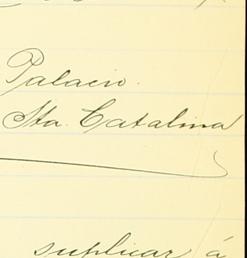 Palacio.
Sta. Catalina
suplicar á